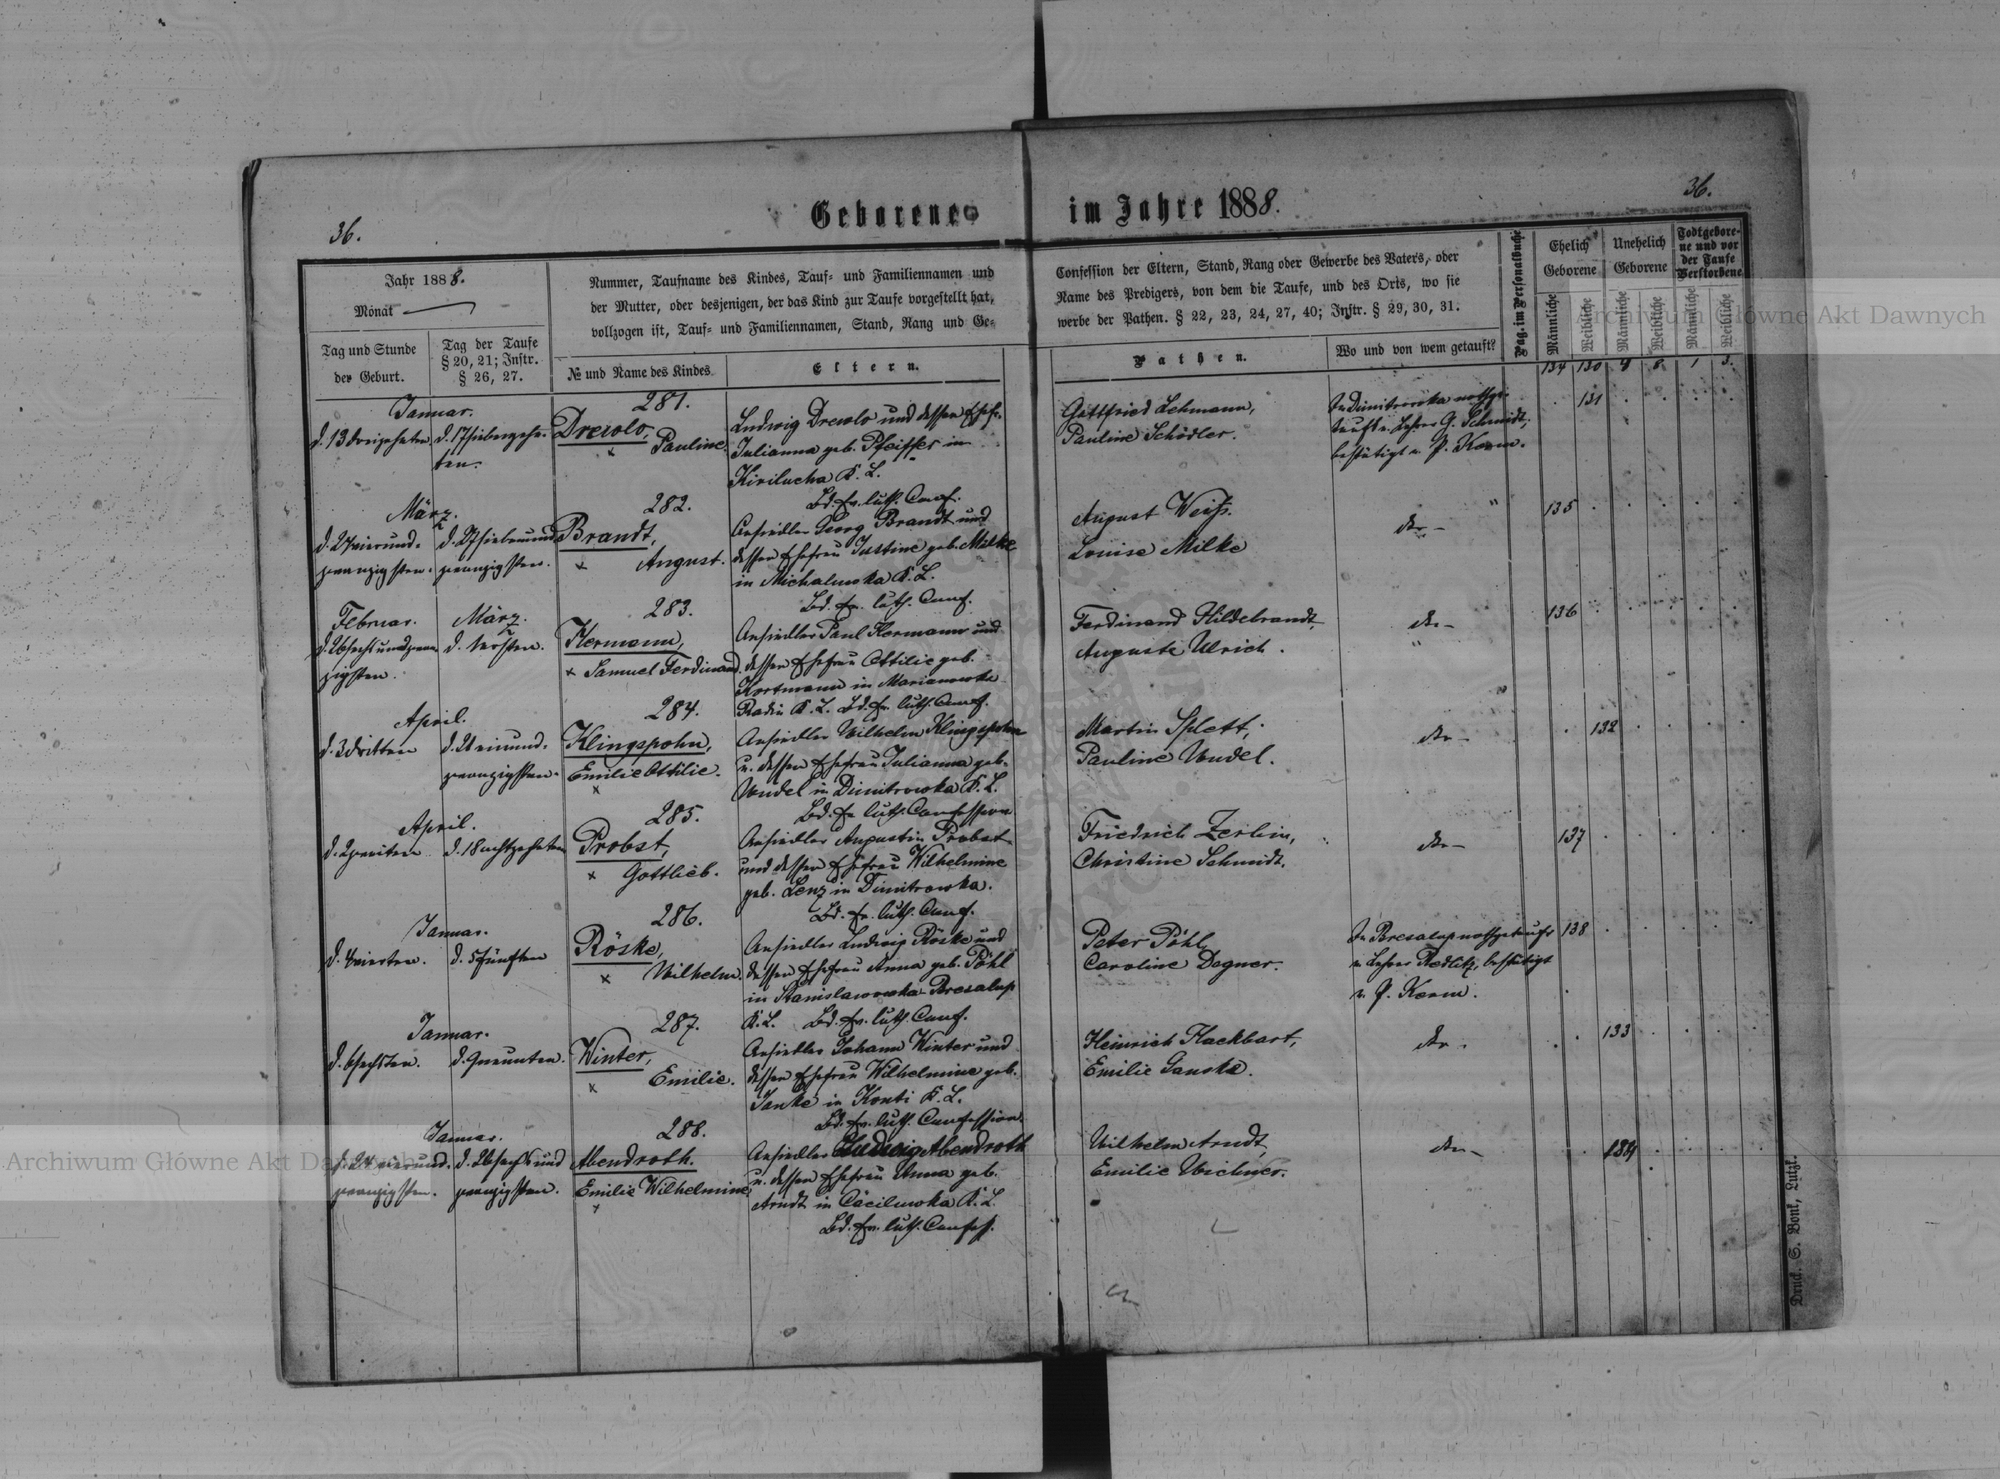 36.
Geborene
im Jahre 1888.
36.
Jahr 1888.
Monat
Tag und Stunde
der Geburt.
Tag der Taufe
§ 20, 21; Instr.
§ 26, 27.
Nummer, Taufname des Kindes, Tauf- und Familiennamen und
der Mutter, oder desjenigen, der das Kind zur Taufe vorgestellt hat,
vollzogen ist, Tauf- und Familiennamen, Stand, Rang und Ge-
№ und Name des Kindes
Eltern.
Confession der Eltern, Stand, Rang oder Gewerbe des Vaters, oder
Name des Predigers, von dem die Taufe, und des Orts, wo sie
werbe der Pathen. § 22, 23, 24, 27, 40; Instr. § 29, 30, 31.
Pathen.
Wo und von wem getauft?
Pag. im Personalbuche
Ehelich
Geborene
Unehelich
Geborene
Todtgebore-
ne und vor
der Taufe
Verstorbene
Männliche
Weibliche
Männliche
Weibliche
Männliche
Weibliche
134 130
Januar.
d. 13 dreizehnten
d. 17 siebenzehn-
ten.
281.
Drewlo,
× Pauline.
Ludwig Drewlo und dessen Ehefr.
Julianna geb. Pfeiffer in
Kirilucha K. L.
Bd. ev. luth. Conf.
Gottfried Lehmann,
Pauline Schödler.
In Dimitrowka nothge-
tauft v. Lehrer G. Schmidt,
bestätigt v. P. Kerm.
131
März.
d. 24 vierund-
zwanzigsten.
d. 27 siebenund
zwanzigsten.
282.
Brandt,
× August.
Ansiedler Georg Brandt und
dessen Ehefrau Justine geb. Milke
in Michaluwka K. L.
Bd. ev. luth. Conf.
August Weiß.
Louise Milke
dto –
135
Februar.
d. 26 sechsundzwan
zigsten.
März.
d. 1 ersten.
283.
Hermann,
× Samuel Ferdinand.
Ansiedler Paul Hermann und
dessen Ehefrau Ottilie geb.
Kortmann in Marianowka
Radin K. L. Bd. ev. luth. Conf.
Ferdinand Hildebrandt,
Auguste Ulrich.
dto –
136
April.
d. 3 dritten
d. 21 einund-
zwanzigsten.
284.
Klingspohn,
Emilie Ottilie.
×
Ansiedler Wilhelm Klingspohn
u. dessen Ehefrau Julianna geb.
Wudel in Dimitrowka K. L.
Bd. ev. luth. Confession
Martin Splett,
Pauline Wudel.
dto –
132
April.
d. 2 zweiten
d. 18 achtzehnten
285.
Probst,
× Gottlieb.
Ansiedler Augustin Probst
und dessen Ehefrau Wilhelmine
geb. Lenz in Dimitrowka.
Bd. ev. luth. Conf.
Friedrich Zerbin,
Christine Schmidt.
dto –
137
Januar.
d. 4 vierten.
d. 5 fünften
286.
Röske,
× Wilhelm.
Ansiedler Ludwig Röske und
dessen Ehefrau Anna geb. Pöhl
in Stanislawowka-Beresalup
K. L. Bd. ev. luth. Conf.
Peter Pöhl,
Caroline Degner.
In Beresalup nothgetauft
v. Lehrer Redlitz, bestätigt
v. P. Kerm.
138
Januar.
d. 6 sechsten.
d. 9 neunten.
287.
Winter,
× Emilie.
Ansiedler Johann Winter und
dessen Ehefrau Wilhelmine geb.
Janke in Konti K. L.
Bd. ev. luth. Confession
Heinrich Hackbart,
Emilie Ganske.
dto.
133
Januar.
d. 24 vierund-
zwanzigsten.
d. 26 sechsund
zwanzigsten.
288.
Abendroth.
Emilie Wilhelmine
×
Ansiedler Ludwig Abendroth
u. dessen Ehefrau Anna geb.
Arndt in Cäciluwka K. L.
Bd. ev. luth. Confess.
Wilhelm Arndt,
Emilie Weichner.
dto –
134
Druck. S. Bonk, Lutzk.
Archiwum Główne Akt Dawnych
Archiwum Główne Akt Dawnych